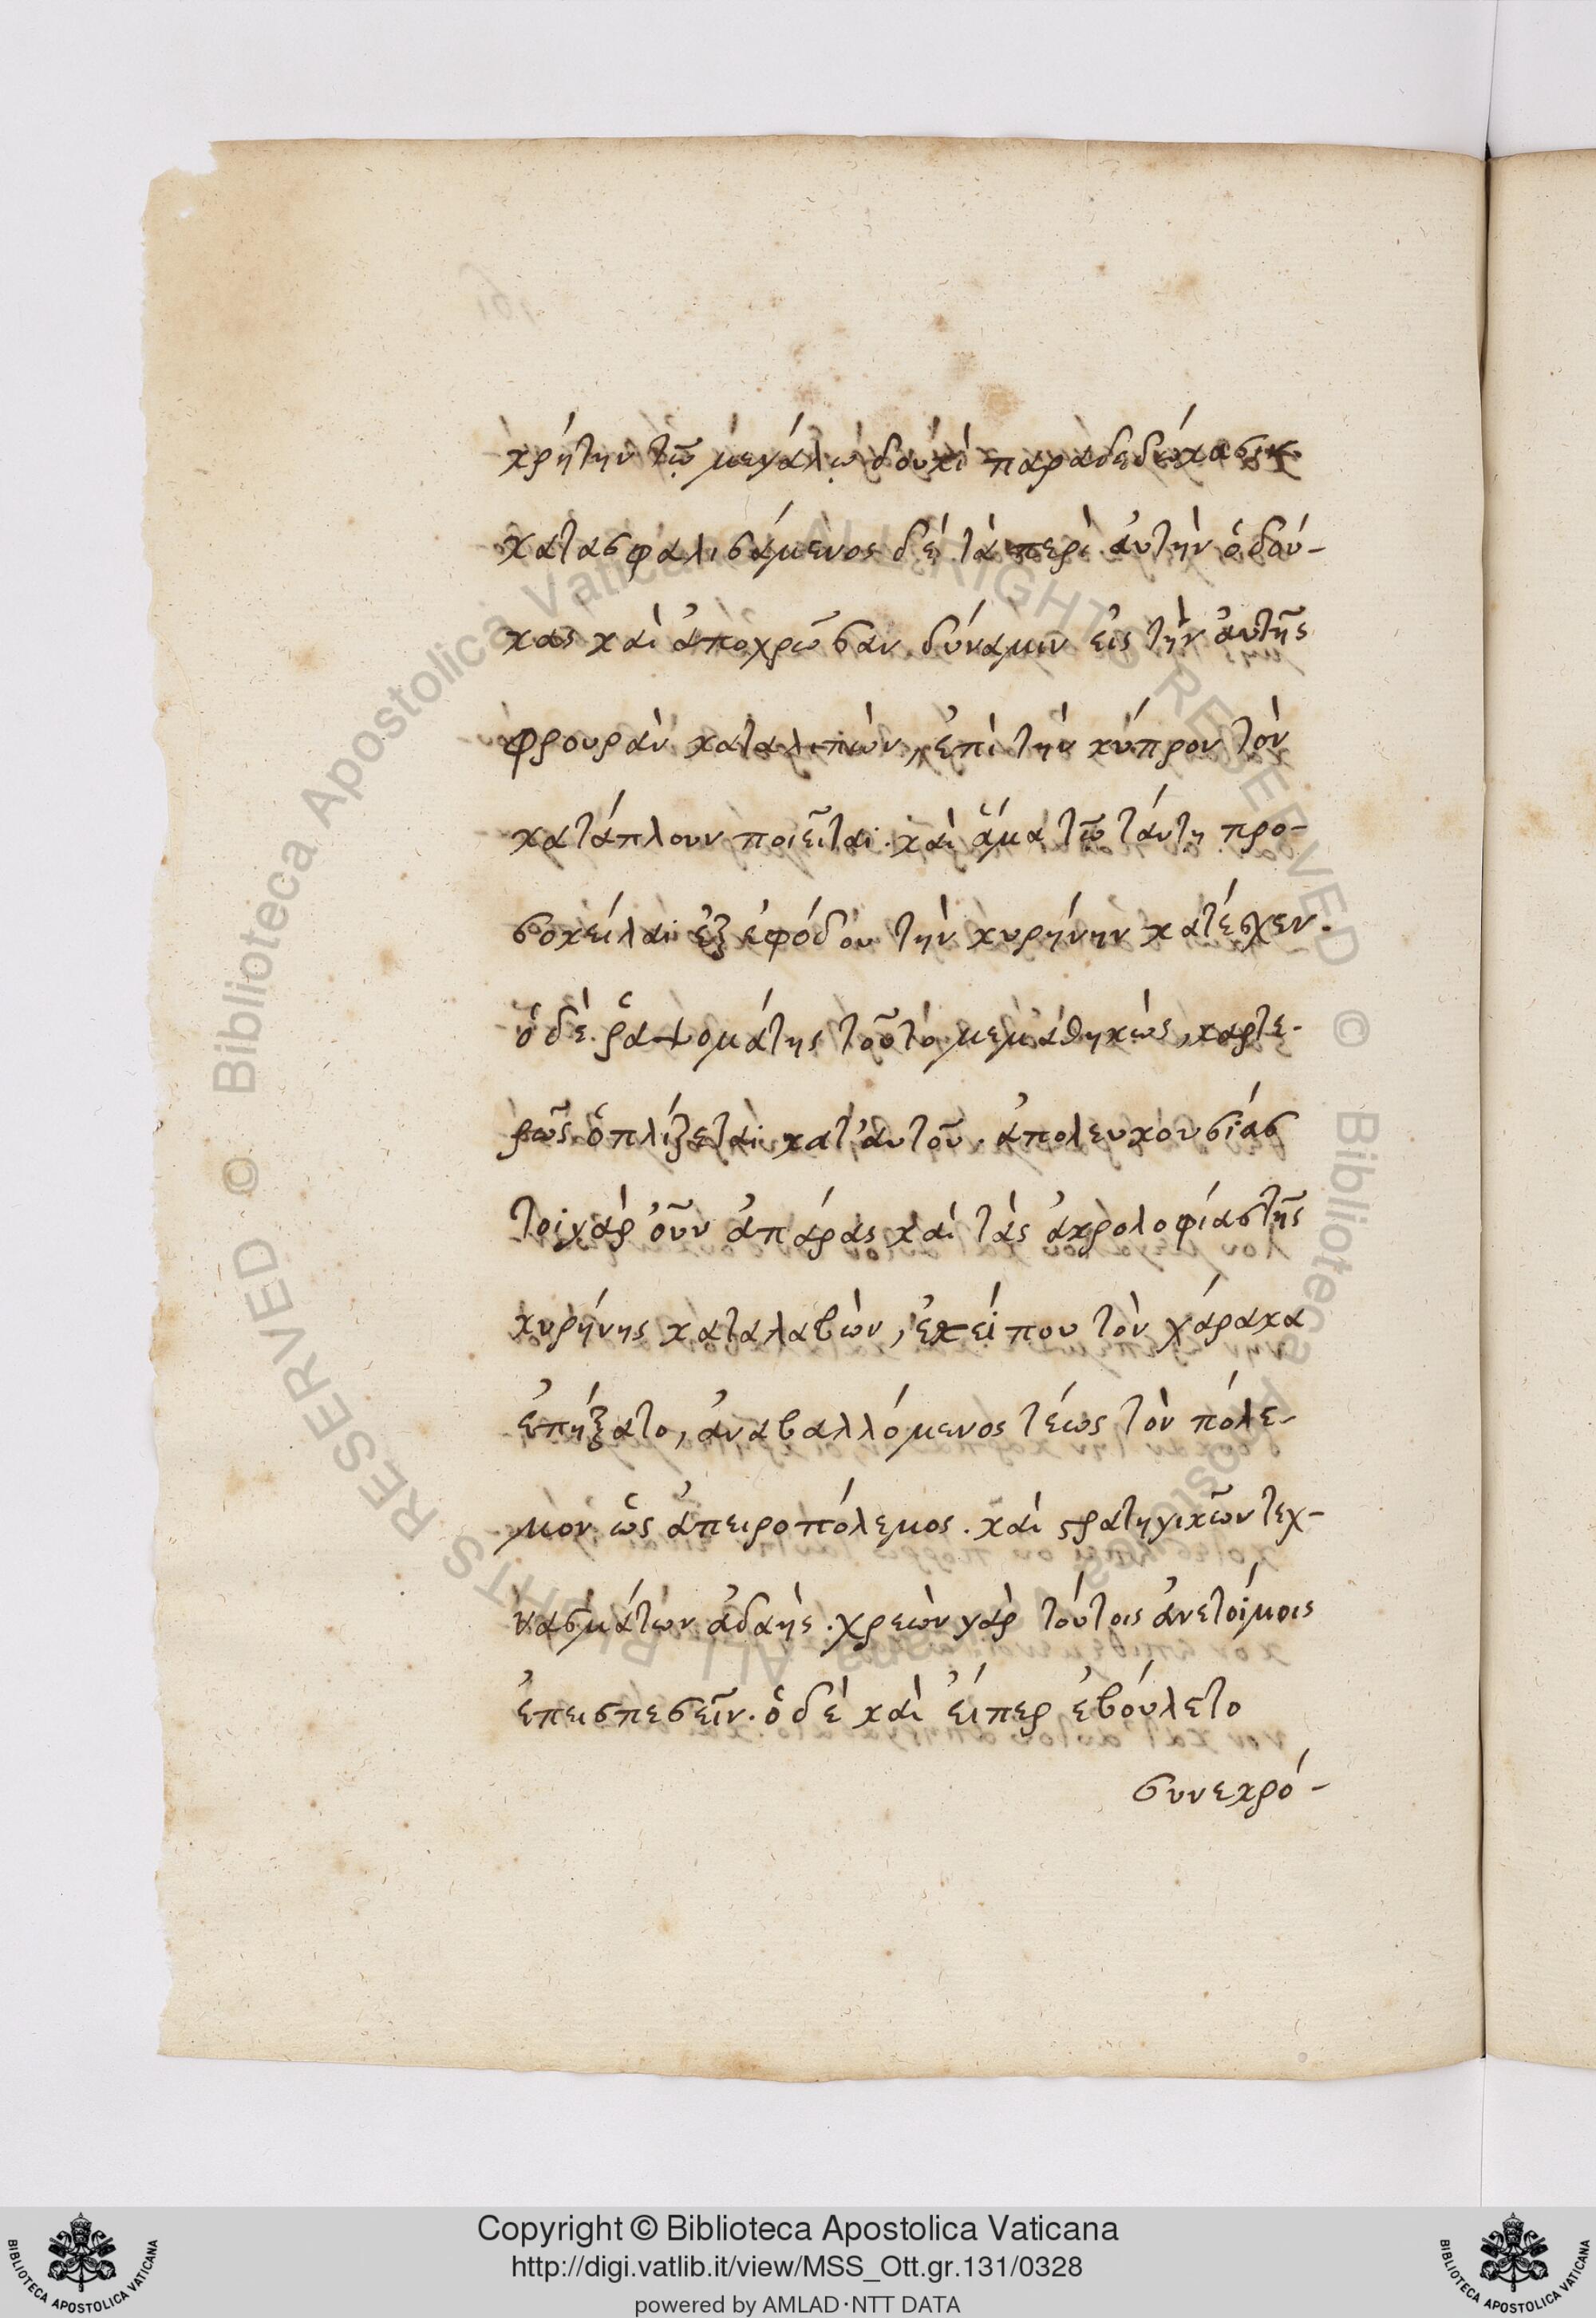 κρήτην τῷ μεγάλῳ δουκὶ παραδεδώκασιν
κατασφαλισάμενος δὲ τὰ περὶ αὐτὴν ὁ δού-
κας καὶ ἀποχρῶσαν δύναμιν εἰς τὴν αὐτῆς
φρουρὰν καταλιπὼν, ἐπὶ τὴν κύπρον τὸν
κατάπλουν ποιεῖται. καὶ ἅμα τῷ ταύτη προ-
σοκεῖλαι ἐξ ἐφόδου τὴν κυρήνην κατέσχεν.
ὁ δὲ ῥαψομάτης τοῦτο μεμαθηκὼς, καρτε-
ρῶς ὁπλίζεται κατ' αὐτοῦ. ἀπολευκουσίας
τοιγὰρ οὖν ἀπάρας καὶ τὰς ἀκρολοφίας τῆς
κυρήνης καταλαβὼν, ἐκεῖ που τὸν χάρακα
ἐπήξατο, ἀναβαλλόμενος τέως τὸν πόλε-
μον ὡς ἀπειροπόλεμος. καὶ στρατηγικῶν τεχ-
νασμάτων ἀδαής. χρεὼν γὰρ τούτοις ἀνετοίμοις
ἐπεισπεσεῖν. ὁ δὲ καὶ εἴπερ ἐβούλετο
συνεκρό-
Copyright © Biblioteca Apostolica Vaticana
http://digi.vatlib.it/view/MSS_Ott.gr.131/0328
powered by AMLAD·NTT DATA
BIBLIOTECA APOSTOLICA VATICANA
BIBLIOTECA APOSTOLICA VATICANA